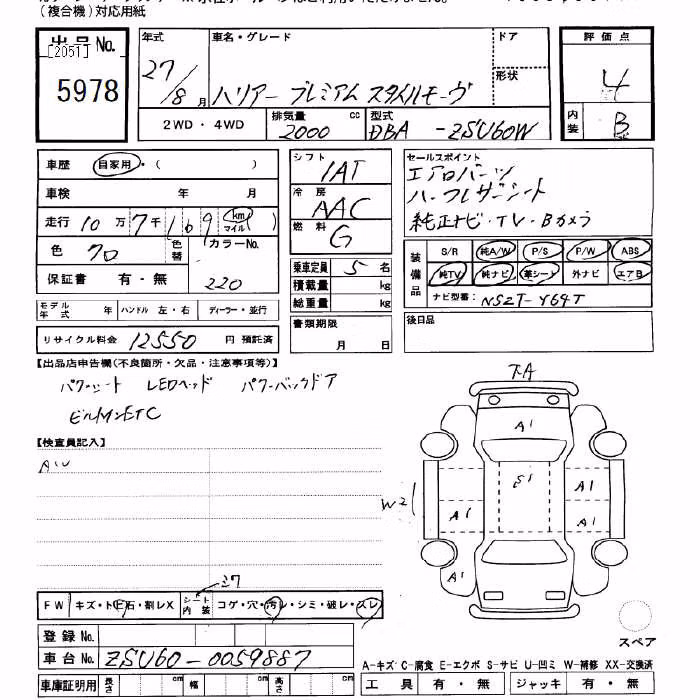 (複合機)対応用紙
出品No.
[2051]
5978
年式 車名・グレード ドア
27/8月 ハリアー プレミアム スタイルモーヴ 形状
2WD・4WD 排気量 2000 cc 型式 DBA -ZSU60W
評価点
4
内装 B
車歴 自家用・( )
車検 年 月
走行 10万7千169 km マイル
色 クロ 色替 カラーNo.
保証書 有・無 220
モデル年式 ハンドル 左・右 ディーラー・並行
リサイクル料金 12550 円 預託済
シフト IAT
冷房 AAC
燃料 G
乗車定員 5 名
積載量 kg
総重量 kg
書類期限
月 日
セールスポイント
エアロパーツ
ハーフレザーシート
純正ナビ・TV・Bカメラ
装備品 S/R 純A/W P/S P/W ABS
純TV 純ナビ 革シート 外ナビ エアB
ナビ型番: NSZT-Y64T
後日品
【出品店申告欄(不良箇所・欠品・注意事項等)】
パワーシート LEDヘッド パワーバックドア
ビルトインETC
【検査員記入】
AW
下A
A1
S1
A1
W2
A1
A1
A1
シワ
FW キズ・ト石・割レX シート内装 コゲ・穴・汚レ・シミ・破レ・スレ
登録No.
車台No. ZSU60-0059887
車庫証明用 長さ cm 幅 cm 高さ cm
スペア
A-キズ C-腐食 E-エクボ S-サビ U-凹ミ W-補修 XX-交換済
工具 有・無 ジャッキ 有・無